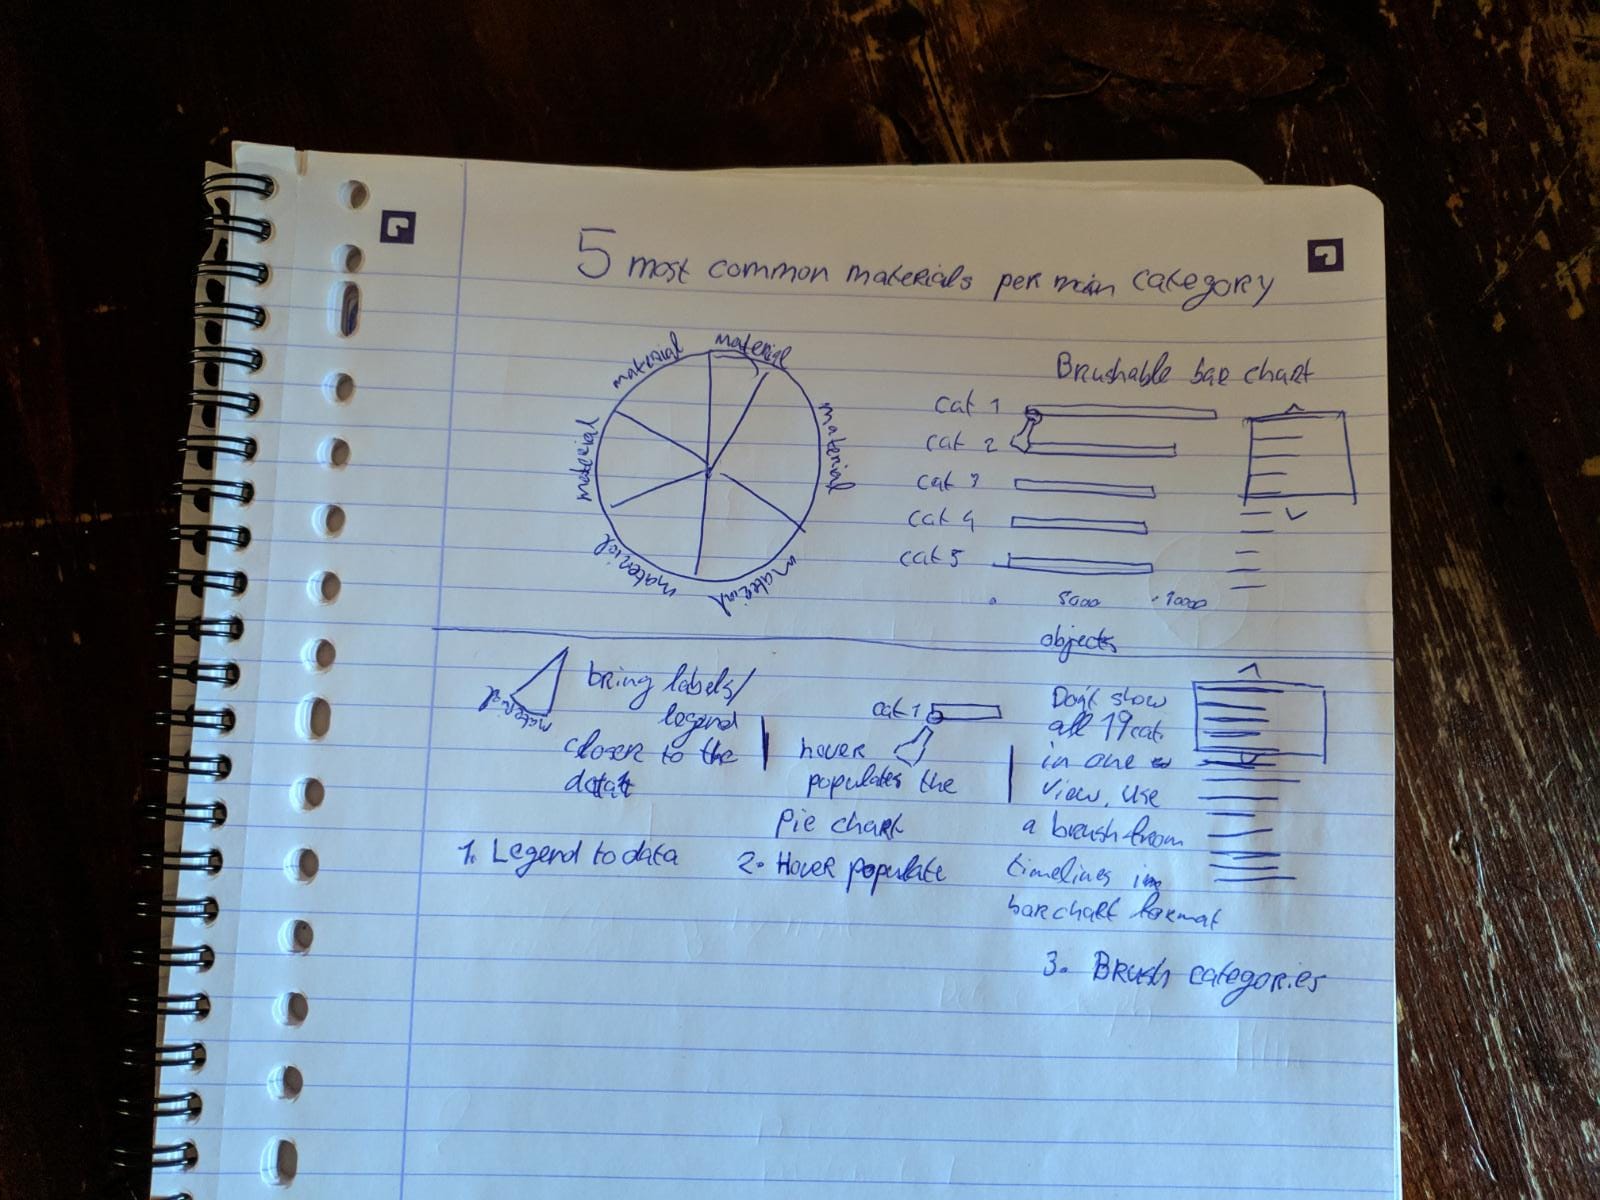 5 most common materials per main category
material
material
material
material
material
material
material
Brushable bar chart
cat 1
cat 2
cat 3
cat 4
cat 5
5000
10000
objects
material
material
bring labels/
legend
closer to the
data
1. Legend to data
cat 1
hover
populates the
Pie chart
2. Hover populate
Don't show
all 19 cat.
in one
view, use
a brush from
timelines in
bar chart format
3. Brush categories